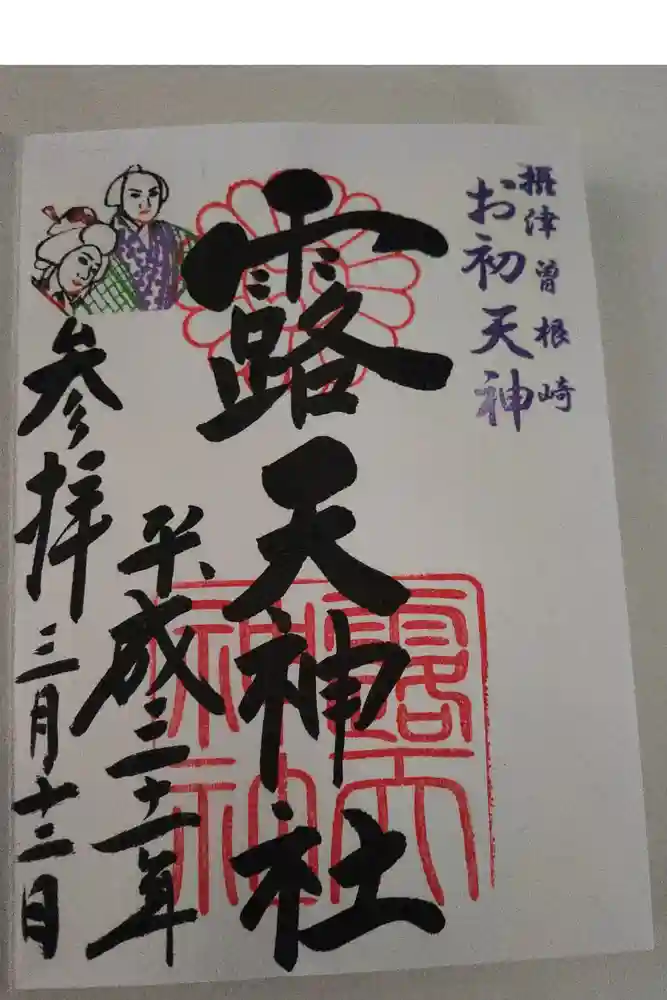 摂津 曽根崎
お初天神
露天神社
平成三十一年
参拝 三月十二日